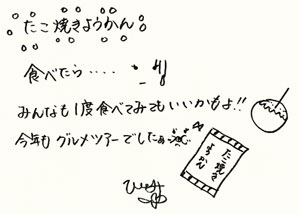 たこ焼きようかん
食べたら‥‥
みんなも1度食べてみてもいいかもよ!!
今年もグルメツアーでしたぁ
たこ焼き
ようかん